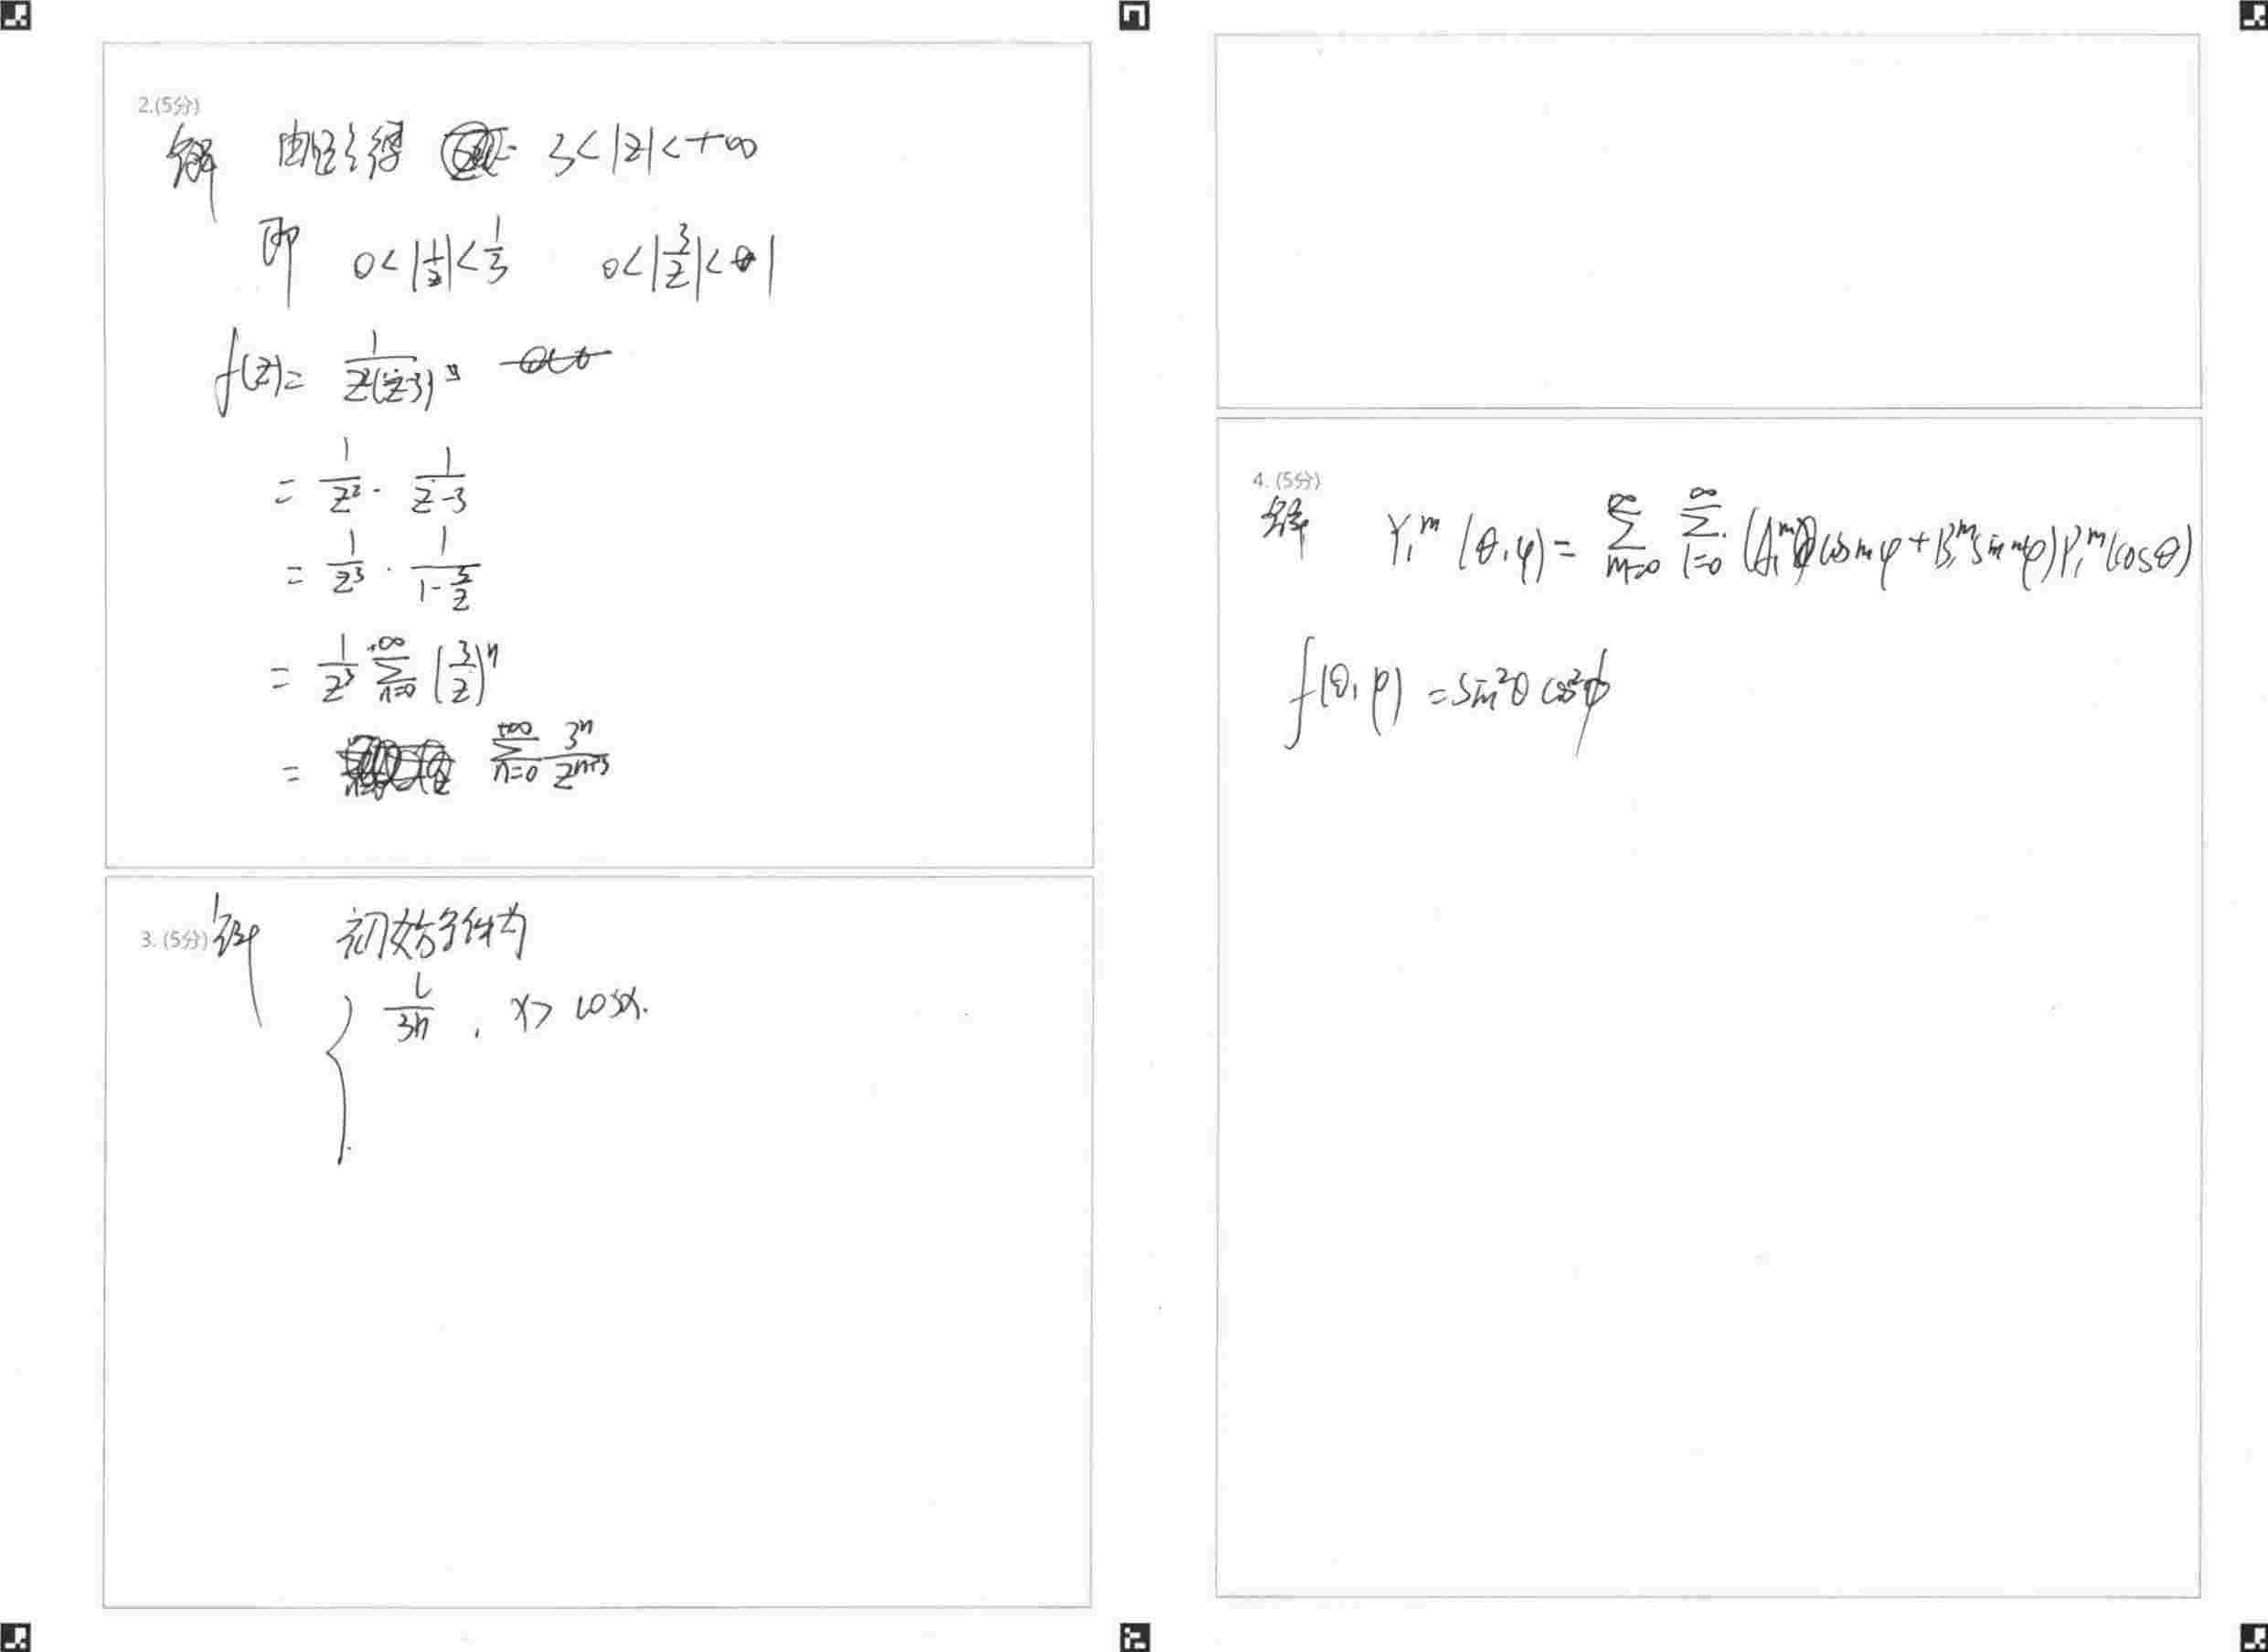 2.(5分)
解 由题得 3<|z|<+∞
即 0<|1/z|<1/3 0<|3/z|<1
f(z)= 1/(z²(z-3)) =
= 1/z² · 1/(z-3)
= 1/z³ · 1/(1-3/z)
= 1/z³ ∑_{n=0}^{+∞} (3/z)^n
= ∑_{n=0}^{+∞} 3^n/z^{n+3}
3. (5分) 解 初始条件为
{ l/3h , x> cosα.
4. (5分)
解 Y_l^m (θ,φ)= ∑_{m=0}^{∞} ∑_{l=0}^{∞} (A_l^m cos mφ + B_l^m sin mφ) P_l^m (cosθ)
f(θ,φ) = sin²θ cos²φ